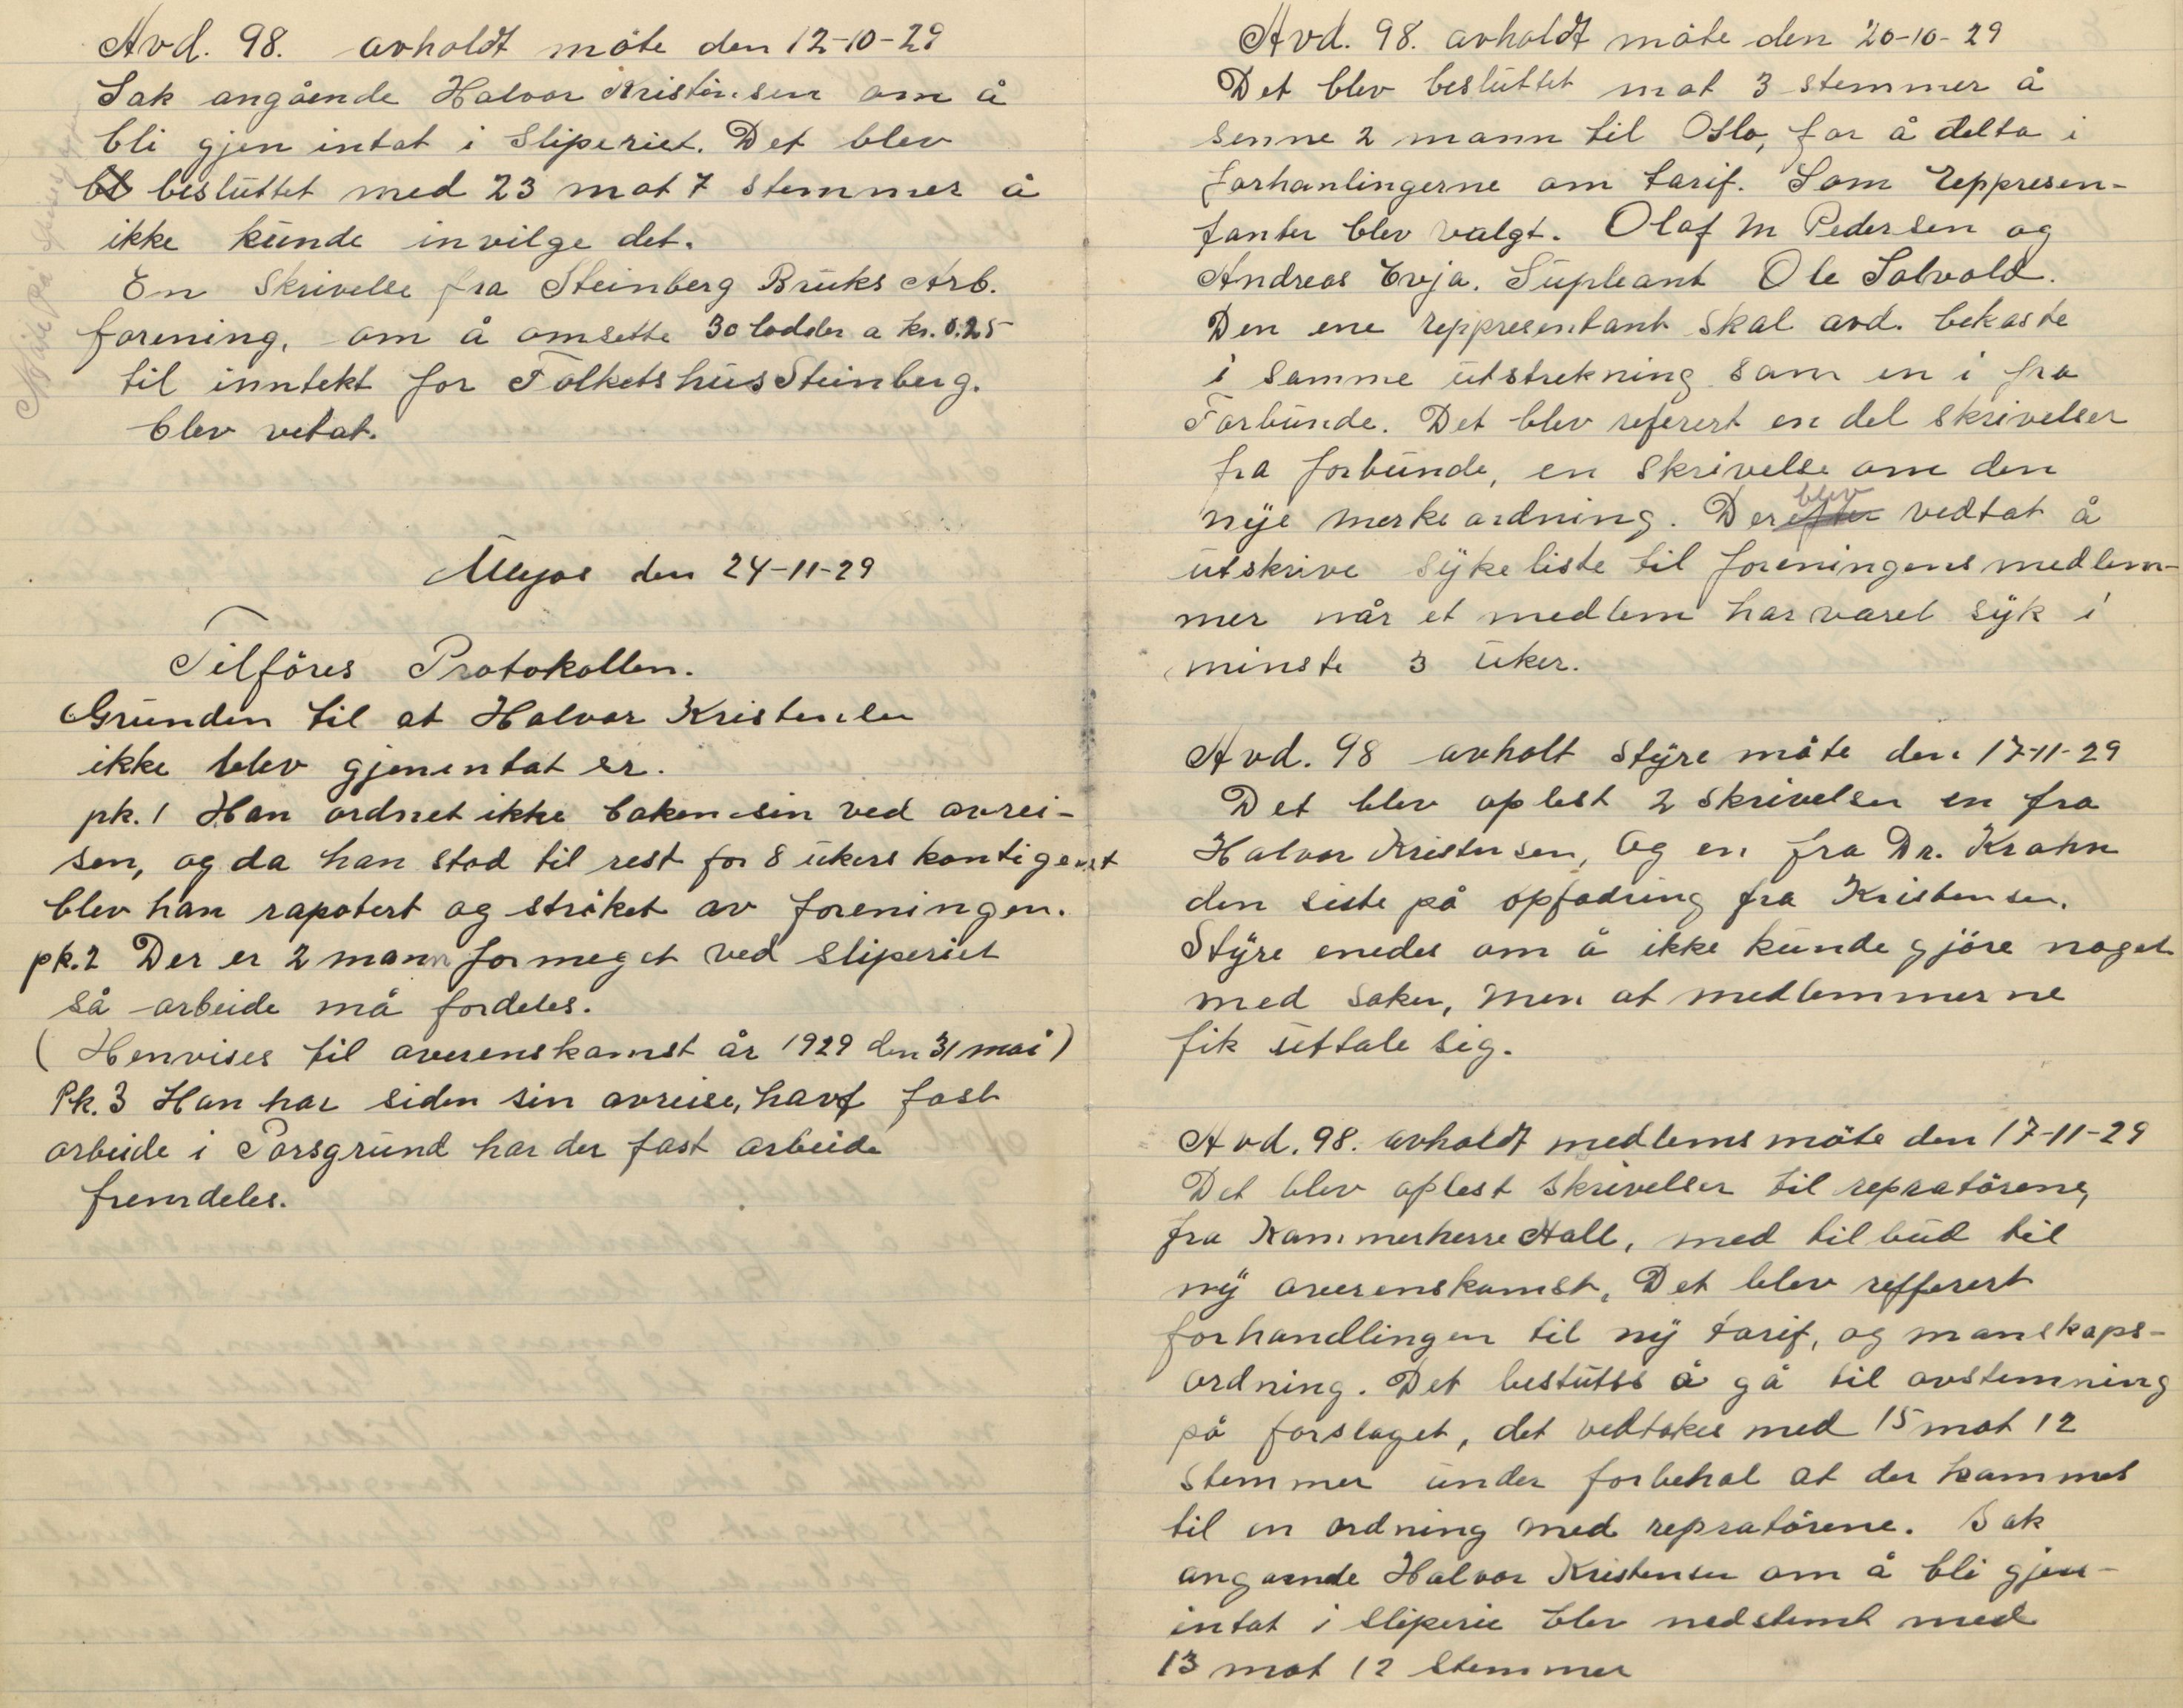 Avd. 98. avholdt möte den 12-10-29
Sak angående Halvor Kristensen om å
bli gjen intat i Sliperiet. Det blev
bl besluttet med 23 mot 7 stemmer å
ikke kunde invilge det.
En Skrivelse fra Steinberg Bruks Arb.
forening, om å omsette 30 lodder a kr. 0.25
til inntekt for Folketshus Steinberg.
blev vetat.
den 24-11-29
Tilföres Protokollen.
Grunden til at Halvor Kristensen
ikke blev gjenentat er.
pk. 1 Han ordnet ikke boken sin ved avrei-
sen, og da han stod til rest for 8 ukers kontigent
blev han rapotert og ströket av foreningen.
pk. 2 Der er 2 mann formeget ved Sliperiet
så arbeide må fordeles.
( Henvises til overenskomst år 1929 den 31 mai )
Pk. 3 Han har siden sin avreise, havt fast
arbeide i Porsgrund har der fast arbeide
fremdeles.
Avd. 98. avholdt möte den 20-10-29
Det blev besluttet mot 3 stemmer å
senne 2 mann til Oslo, for å delta i
forhanlingerne om tarif. Som Reppresen-
tanter blev valgt. Olaf M Pedersen og
Andreas Evja. Supleant Ole Solvold.
Den ene reppresentant skal avd. bekoste
i samme utstrekning som en i fra
Forbunde. Det blev referert en del skrivelser
fra forbunde, en skrivelse om den
nye merke ordning. Derefter blev vedtat å
utskrive syke liste til foreningens medlem-
mer når et medlem har varet syk i
minste 3 uker.
Avd. 98 avholt styre möte den 17-11-29
Det blev oplest 2 skrivelser en fra
Halvor Kristensen, Og en fra Dr. Krohn
den siste på opfodring fra Kristensen.
Styre enedes om å ikke kunde gjöre noget
med saken, men at medlemmerne
fik uttale sig.
Avd. 98. avholdt medlems möte den 17-11-29
Det blev oplest skrivelser til repratörene,
fra Kammerherre Aall, med tilbud til
ny overenskomst, Det blev refferert
forhandlingen til ny tarif, og manskaps-
ordning. Det beslutes å gå til avstemning
på forslaget, det vedtokes med 15 mot 12
Stemmer under forbehol at der kommes
til en ordning med repratörene. Sak
angående Halvor Kristensen om å bli gjen-
intat i Sliperie blev nedstemt med
13 mot 12 Stemmer